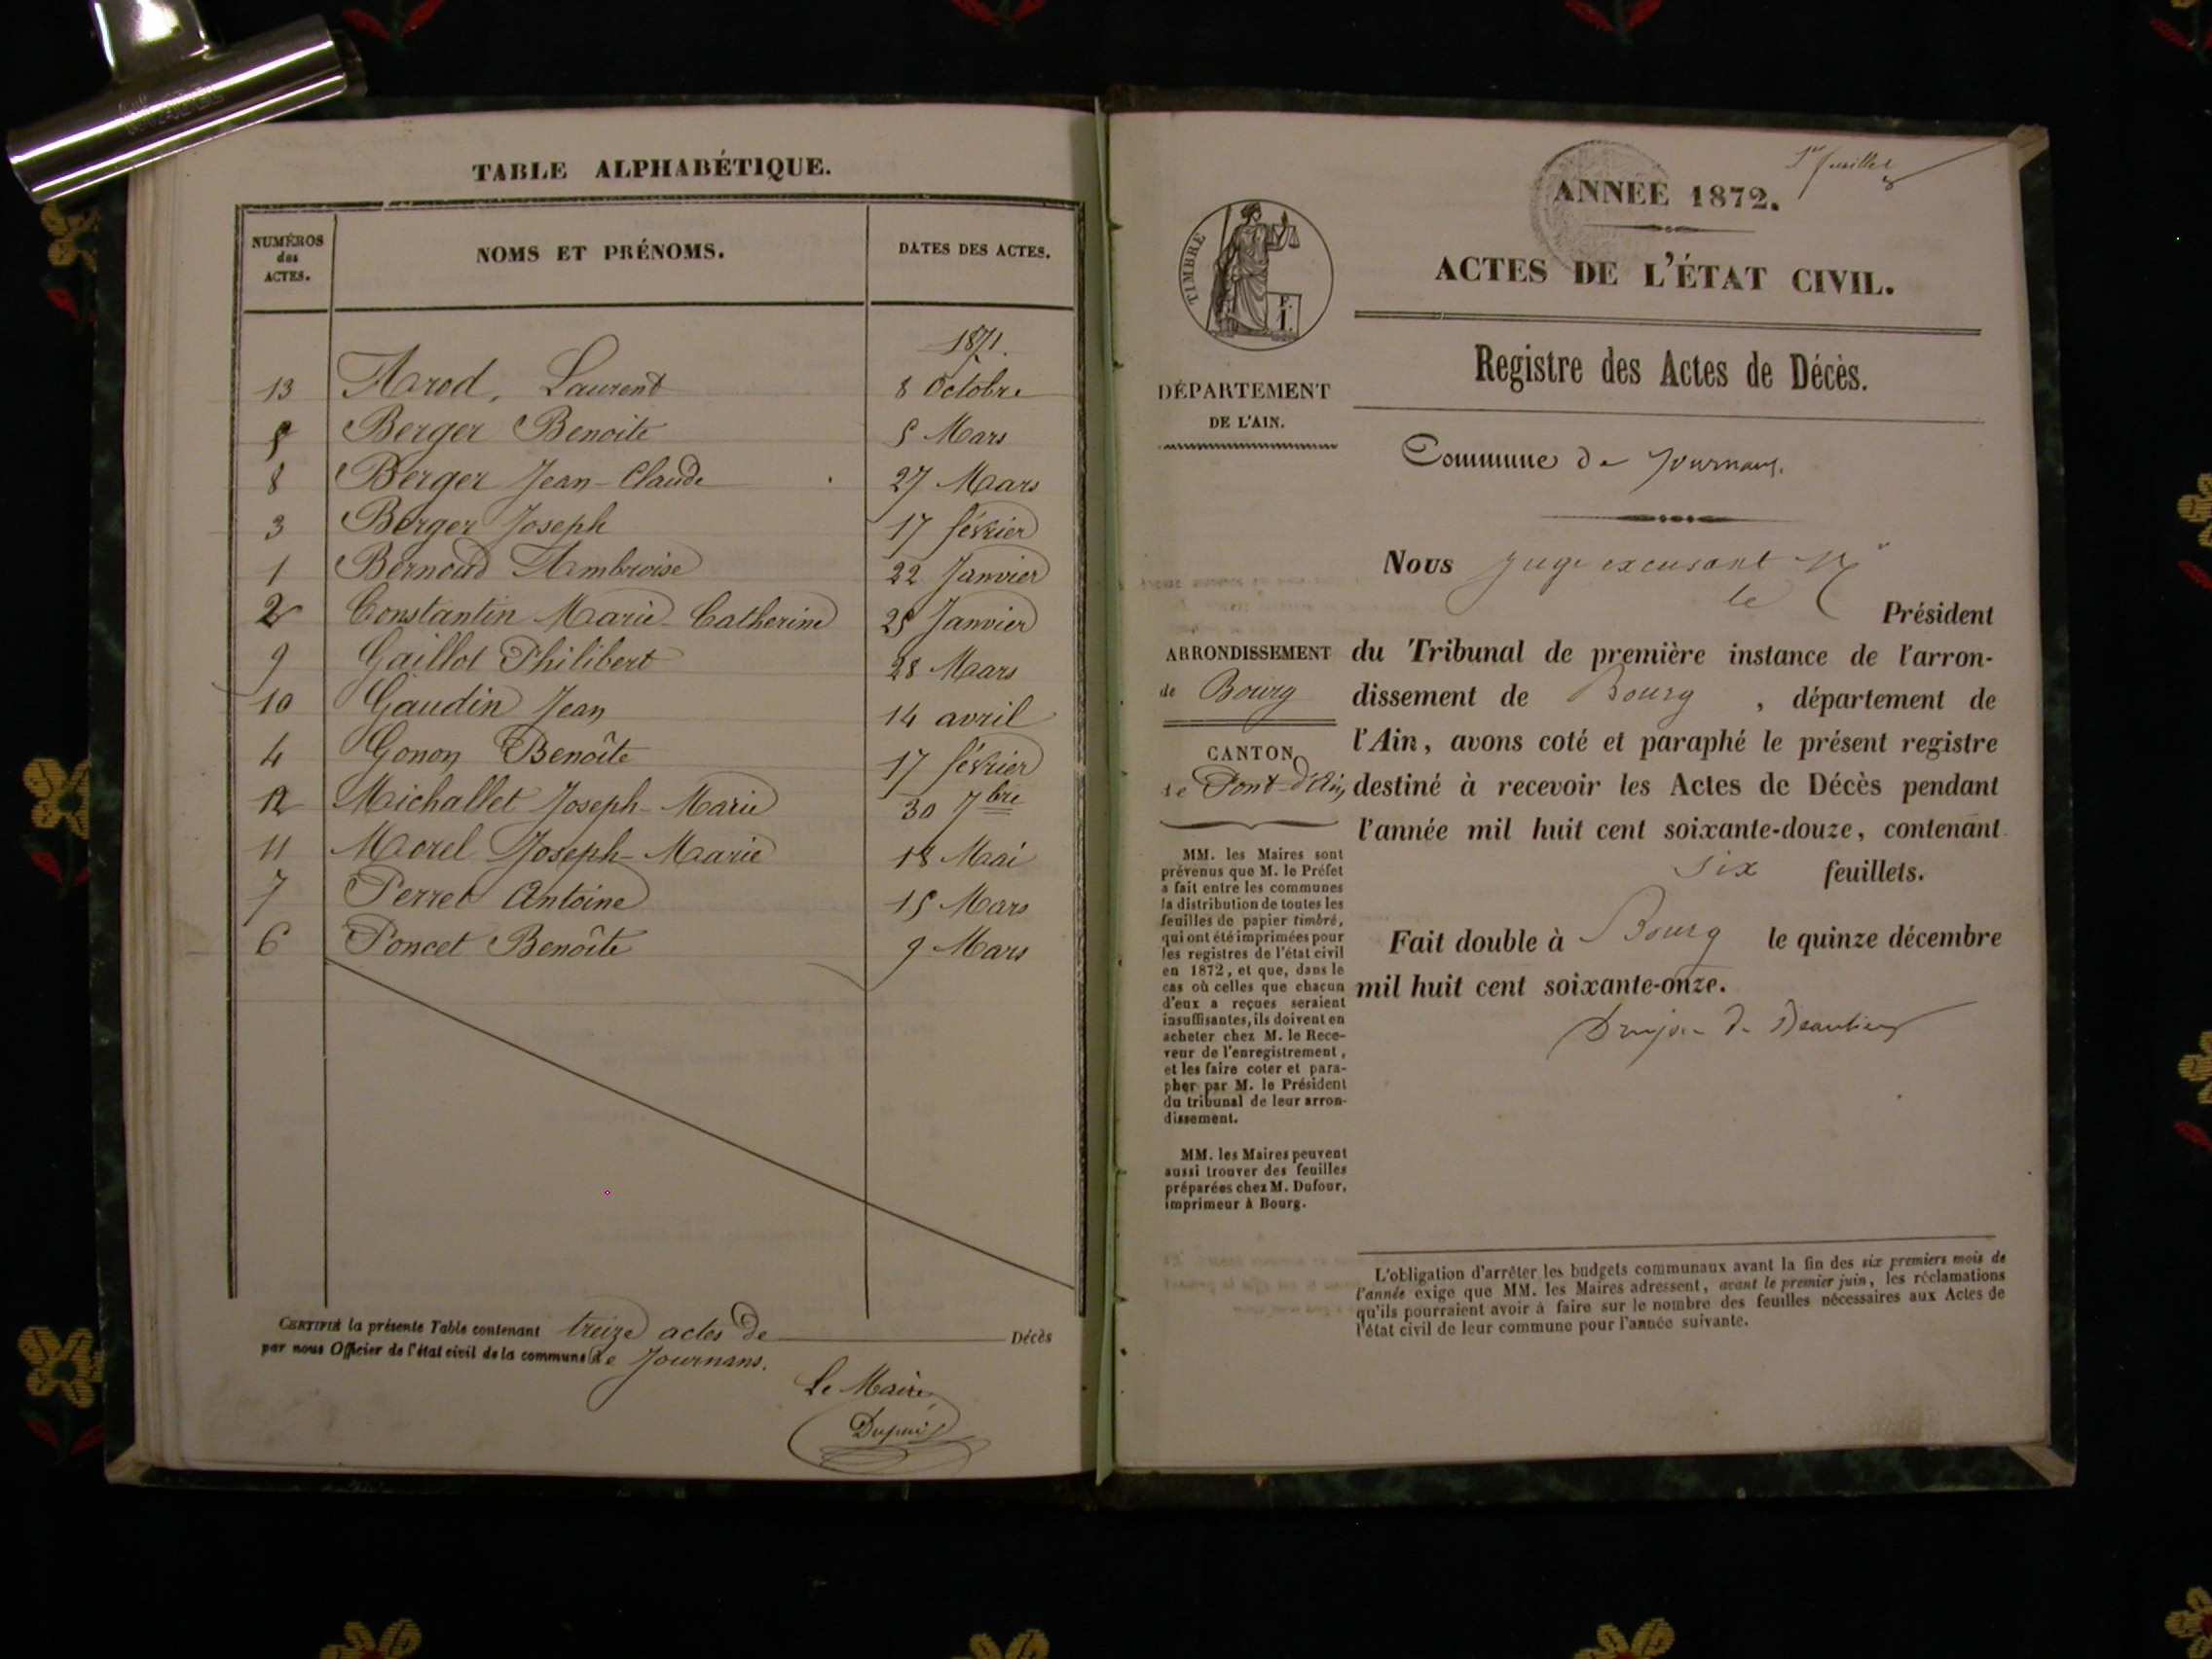 TABLE ALPHABÉTIQUE.
NUMÉROS
des
ACTES.
NOMS ET PRÉNOMS.
DATES DES ACTES.
1871.
13 Arod, Laurent 8 Octobre
5 Berger Benoite 5 Mars
8 Berger Jean-Claude 27 Mars
3 Berger Joseph 17 février
1 Bernoud Ambroise 22 Janvier
2 Constantin Marie-Catherine 25 Janvier
9 Gaillot Philibert 28 Mars
10 Gaudin Jean 14 avril
4 Gonon Benoîte 17 février
12 Michallet Joseph-Marie 30 7bre
11 Morel Joseph-Marie 18 Mai
7 Perret Antoine 15 Mars
6 Poncet Benoîte 9 Mars
CERTIFIÉ la présente Table contenant treize actes de Décès
par nous Officier de l'état civil de la commune de Journans.
Le Maire,
Dupuis
1er feuillet
ANNÉE 1872.
ACTES DE L'ÉTAT CIVIL.
Registre des Actes de Décès.
TIMBRE
DÉPARTEMENT
DE L'AIN.
ARRONDISSEMENT
de Bourg
CANTON
de Pont-d'Ain,
MM. les Maires sont
prévenus que M. le Préfet
a fait entre les communes
la distribution de toutes les
feuilles de papier timbré,
qui ont été imprimées pour
les registres de l'état civil
en 1872, et que, dans le
cas où celles que chacun
d'eux a reçues seraient
insuffisantes, ils doivent en
acheter chez M. le Rece-
veur de l'enregistrement,
et les faire coter et para-
pher par M. le Président
du tribunal de leur arron-
dissement.
MM. les Maires peuvent
aussi trouver des feuilles
préparées chez M. Dufour,
imprimeur à Bourg.
Commune de Journans.
Nous juge excusant Mr
le Président
du Tribunal de première instance de l'arron-
dissement de Bourg, département de
l'Ain, avons coté et paraphé le présent registre
destiné à recevoir les Actes de Décès pendant
l'année mil huit cent soixante-douze, contenant
six feuillets.
Fait double à Bourg le quinze décembre
mil huit cent soixante-onze.
L'obligation d'arrêter les budgets communaux avant la fin des six premiers mois de
l'année exige que MM. les Maires adressent, avant le premier juin, les réclamations
qu'ils pourraient avoir à faire sur le nombre des feuilles nécessaires aux Actes de
l'état civil de leur commune pour l'année suivante.